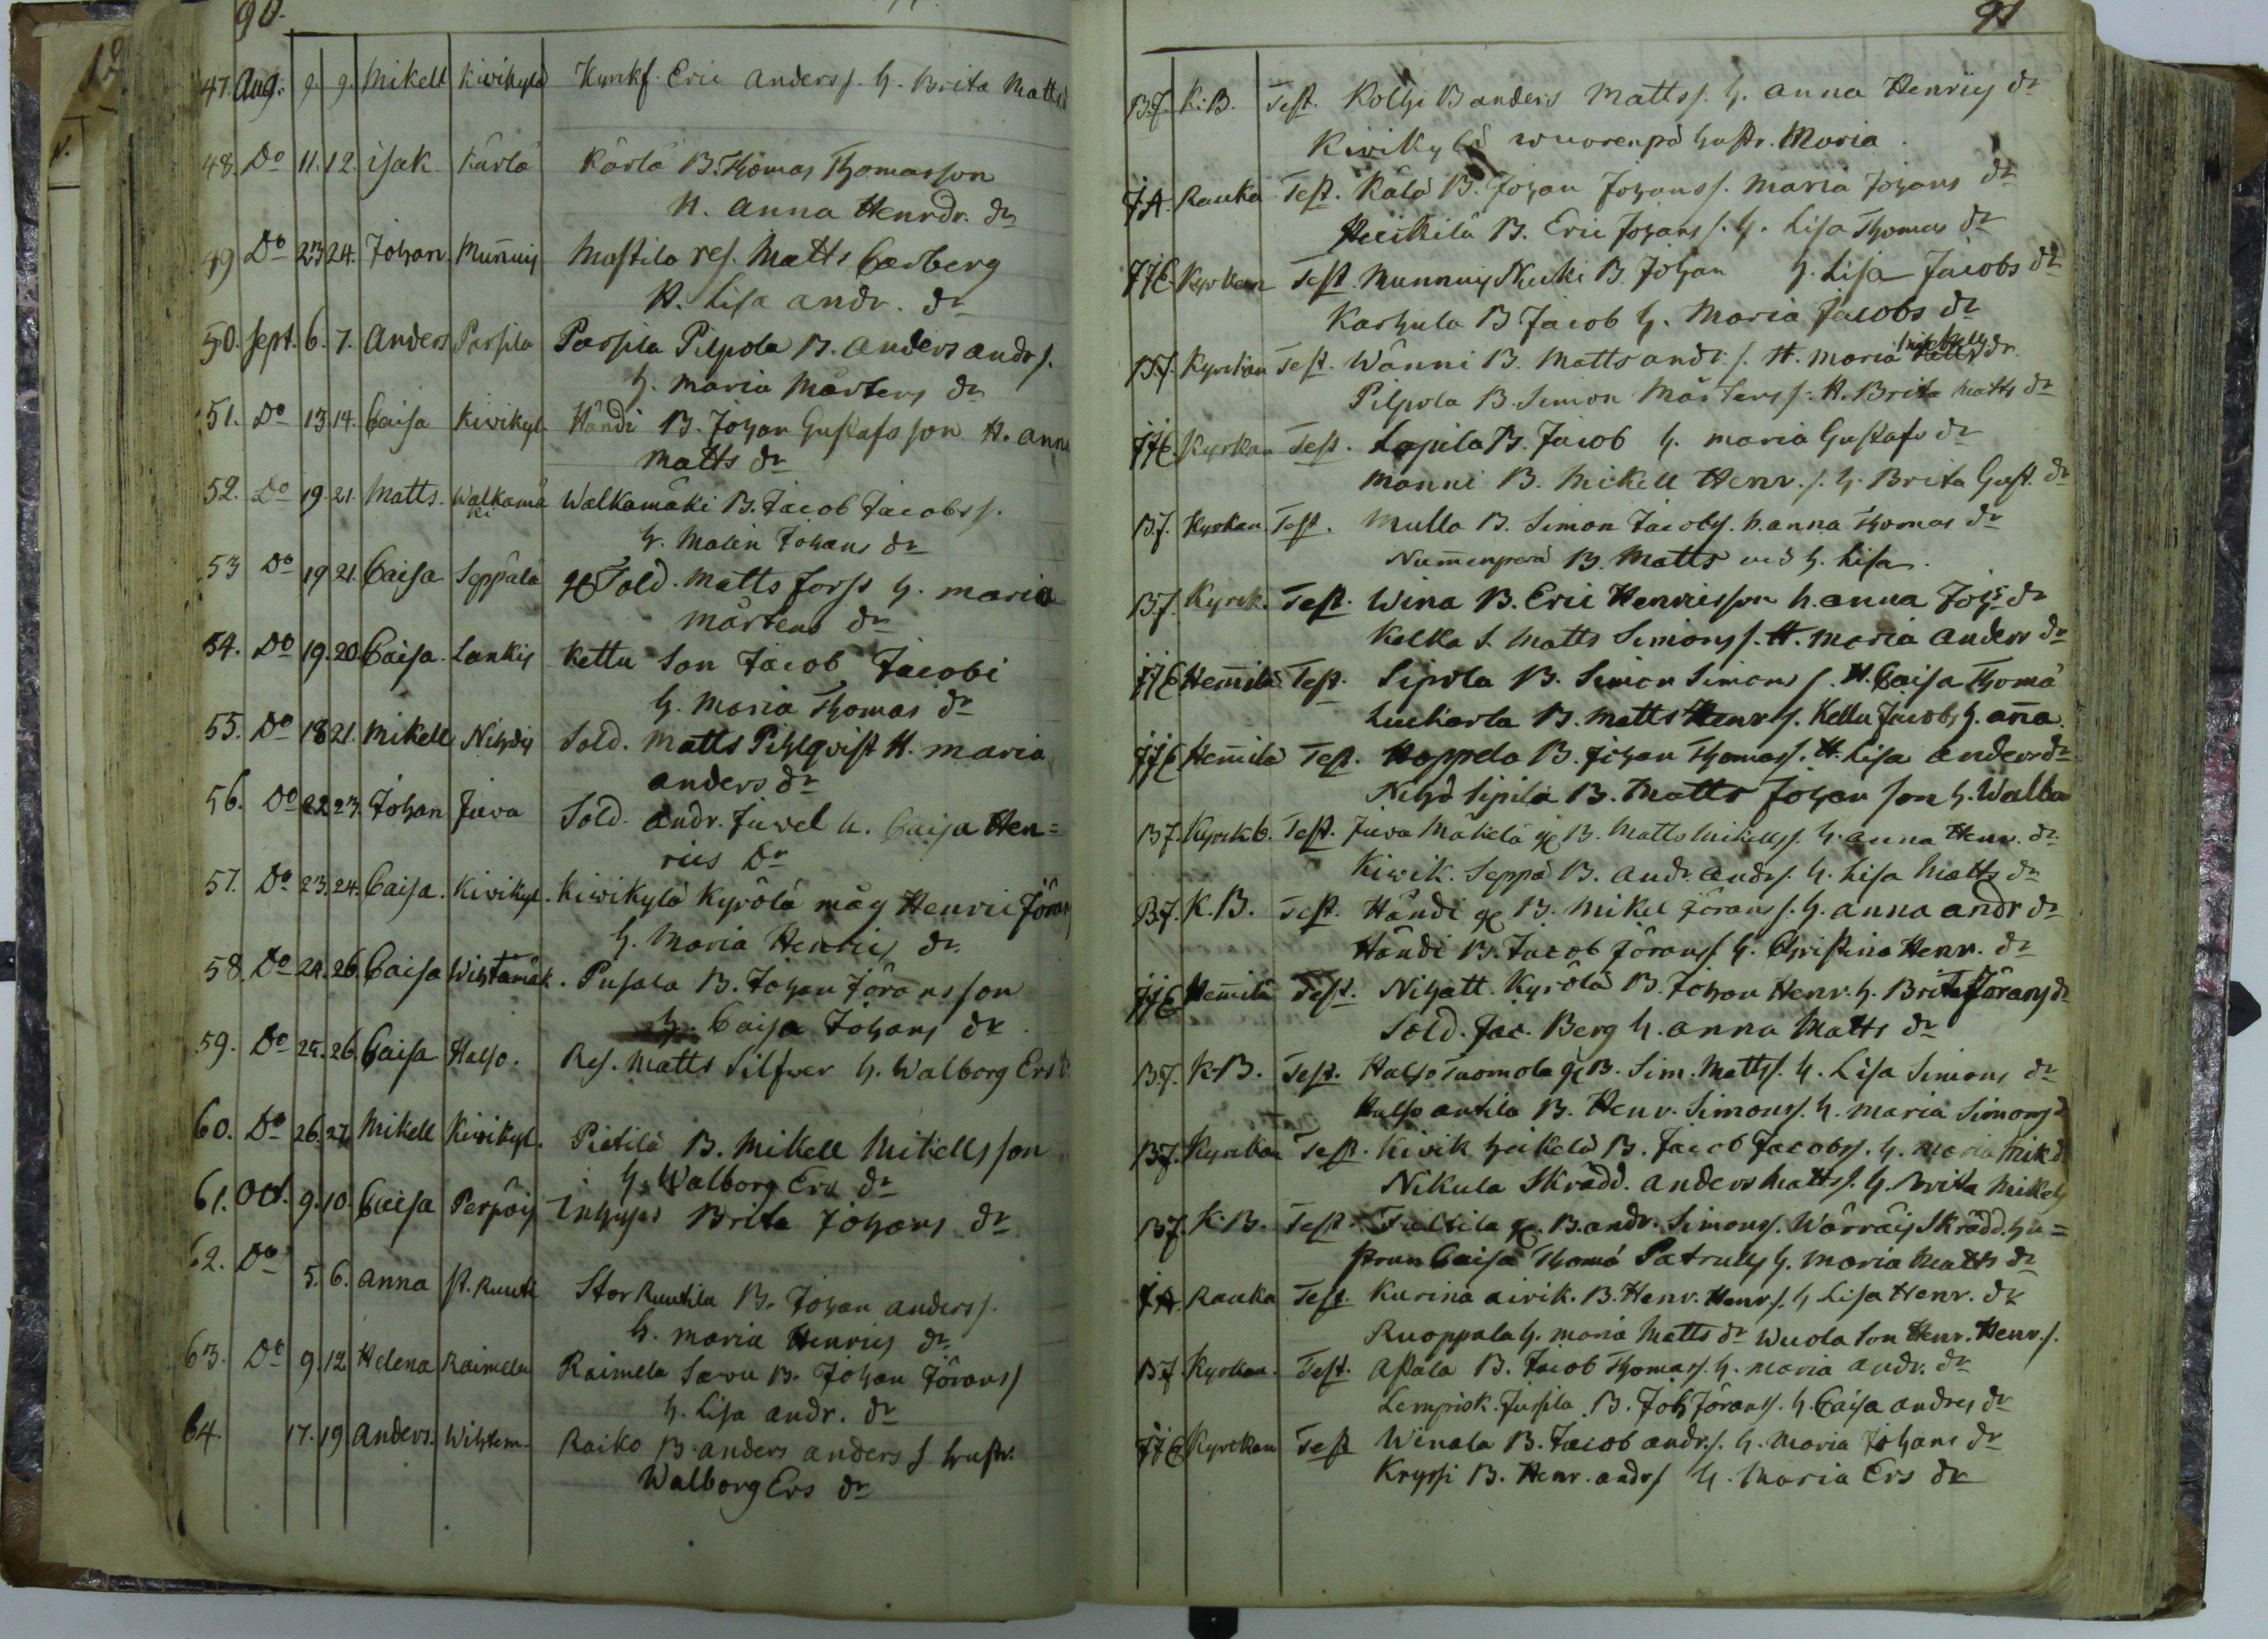 90.
47. Aug: 9. 9. Mikell Kivikylä Kyrckf. Eric Anders s. h. Brita Matts
48. Do 11. 12. Isak Karlä Kärlä B. Thomas Thomasson
H. Anna Henrdr. dr
49 Do 23 24. Johan Munnis Mastila res. Matts Carberg
H. Lisa andr. dr
50. Sept. 6. 7. Anders Parsila Parsila Pilpola B. Anders andr s.
h. Maria Mårtens dr
51. Do 13 14. Caisa Kivikyl. Händi B. Johan Gustafsson H. Anna
Matts dr
52. Do 19. 21. Matts. Walkamä
ki Walkamäki B. Jacob Jacobs s.
h. Malin Johans dr
53 Do 19 21. Caisa Seppälä Sold. Matts Forss h. Maria
Mårtens dr
54. Do 19. 20. Caisa. Lankis Kettu Son Jacob Jacobi
h. Maria Thomas dr
55. Do 18 21. Mikell Nihdis Sold. Matts Pihlqvist H. Maria
anders dr
56. Do 22 23. Johan Juva Sold. Andr. Juvel h. Caisa Hen=
rics dr
57. Do 23. 24. Caisa. Kivikyl. Kivikylä Kyrölä måg Henric Jöran
h. Maria Henrics dr.
58. Do 24. 26. Caisa Wihtamäk. Pusala B. Johan Jöransson
h. Caisa Johans dr.
59. Do 25. 26. Caisa Halso. Res. Matts Silfver h. Walborg Ers d
60. Do 26. 27. Mikell Kivikyl. Pietilä B. Mikell Mikellsson
h. Walborg Ers dr
61. Oct. 9. 10. Caisa Perpöis Inhyses Brita Johans dr
62. Do 5. 6. Anna st. Ruuti Stor Ruutila B. Johan Anders s.
h. Maria Henrics dr.
63. Do 9. 12. Helena Raimela Raimela Savu B. Johan Jörans s
h. Lisa andr. dr
64. 17. 19. Anders. Wihtem. Raiko B. Anders Anders s hustr.
Walborg Ers dr
91
B.f. K.B. Test. Kolhi B Anders Matts s. h. Anna Henrics dr
Kivikylä Wuorenpä hustr. Maria.
JA. Rauka Test. Kälä B. Johan Johans s. Maria Johans dr
Heickilä B. Eric Johans s. h. Lisa Thomas dr
Kyrckan Test. Munnis Nucki B. Johan h. Lisa Jacobs dr
Karhula B Jacob h. Maria Jacobs dr
B.f. Kyrckan Test. Wänni B. Matts andr. s. H. Maria Mickells dr.
Pilpola B. Simon Mårtens s. H. Brita Matts dr
Kyrkan Test. Lapila B. Jacob h. Maria Gustafs dr
Manni B. Mikell Henr. s. h. Brita Gust. dr
B.f. Kyrkan. Test. Mulla B. Simon Jacobs s. h. Anna Thomas dr
Nummenperä B. Matts med h. Lisa.
B.f. Kyrck. Test. Wina B. Eric Henricsson h. Anna Johs dr
Kelka S. Matts Simons s. H. Maria Anders dr
Hemmilä Test. Sipola B. Simon Simons s. H. Caisa Thoma
Luckarla B. Matts Henr s. Kellu Jacobs h. Anna.
Hemmilä Test. Hoppela B. Johan Thomas s. H. Lisa Anders dr
Nihd Sipilä B. Matts Johanson h. Walba
B.f. Kyrckb. Test. Juva Mäkelä B. Matts Mickells s. h. Anna Henr. dr
Kivik. Seppä B. andr. andr s. h. Lisa Matts dr
B.f. K.B. Test. Händi B. Mikel Jörans s. h. Anna Andr dr
Händi B. Jacob Jörans s. h. Christina Henr. dr
Hemmilä Test. Nihatt. Kyrölä B. Johan Henr. h. Brita Jörans dr
Sold. Jac. Berg h. Anna Matts dr
B.f. K.B. Test. Halso Tuomola B. Sim. Matts s. h. Lisa Simons dr
Halso Antila B. Henr. Simons s. h. Maria Simons d
B.f. Kyrckan Test. Kivik Heikelä B. Jacob Jacobs s. h. Maria Mik d
Nikula Skrädd. Anders Matts s. h. Brita Mikels
B.f. K.B. Test. B. Andr. Simons s. Wärräis Skrädd. hu=
strun Caisa Thoma Patrulls h. Maria Matts dr
JA. Rauka Test. Kurina Airik. B. Henr. Henr s. h Lisa Henr. dr
Ruoppala h. Maria Matts dr Wuola Son Henr. Henr. s.
B.f. Kyrckan. Test. Astala B. Jacob Thomas s. h. Maria Andr. dr
Lempisk. Jussila B. Joh Jörans s. h. Caisa Andres dr
Kyrckan Test Winala B. Jacob andr. s. h. Maria Johans dr
Kryssi B. Henr. andr s h. Maria Ers dr